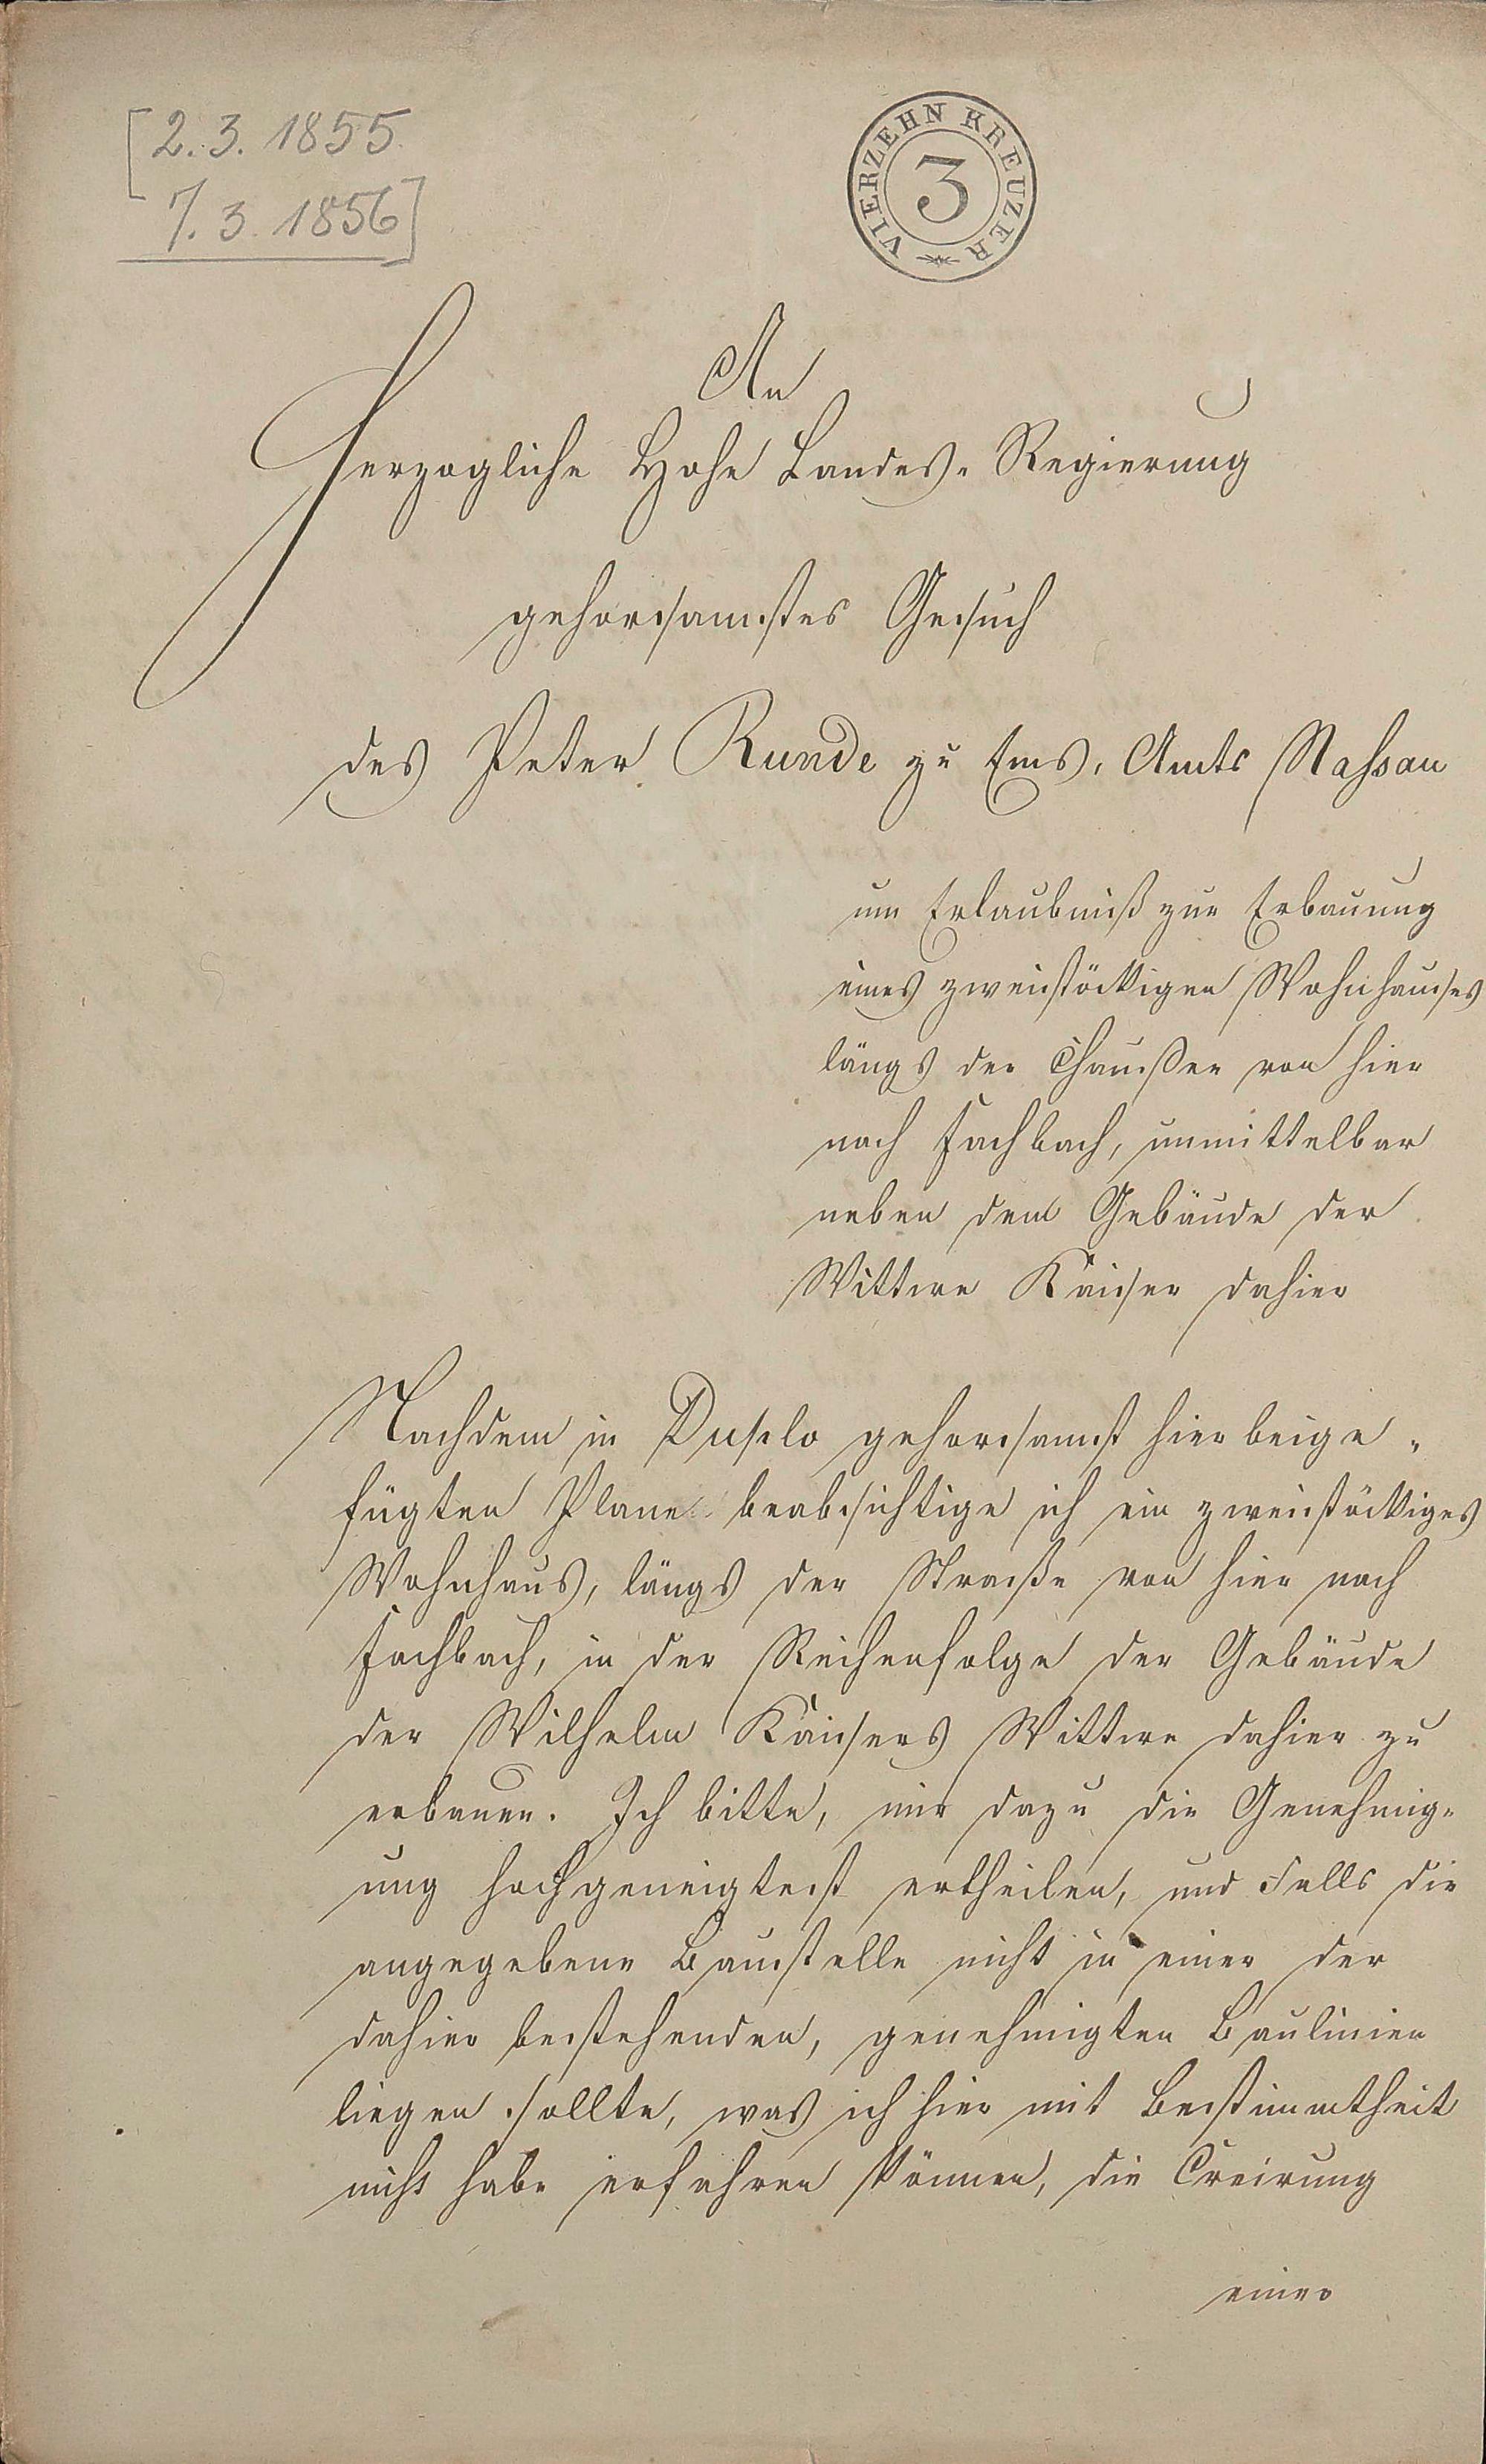 [2.3.1855.
7.3.1856]
VIERZEHN KREUZER
3
An
Herzogliche Hohe Landes-Regierung
gehorsamstes Gesuch
des Peter Runde zu Ems, Amts Nassau
um Erlaubniß zur Erbauung
eines zweistöckigen Wohnhauses
längs der Chaussee von hier
nach Fachbach, unmittelbar
neben dem Gebäude der
Wittwe Kaiser dahier
Nachdem in Duplo gehorsamst hier beige-
fügten Plane beabsichtige ich ein zweistöckiges
Wohnhaus, längs der Straße von hier nach
Fachbach, in der Reihenfolge der Gebäude
der Wilhelm Kaisers Wittwe dahier zu
erbauen. Ich bitte, mir dazu die Genehmig-
ung hochgeneigtest ertheilen, und Falls die
angegebene Baustelle nicht in einer der
dahier bestehenden, genehmigten Baulinien
liegen sollte, was ich hier mit Bestimmtheit
nicht habe erfahren können, die Creirung
einer